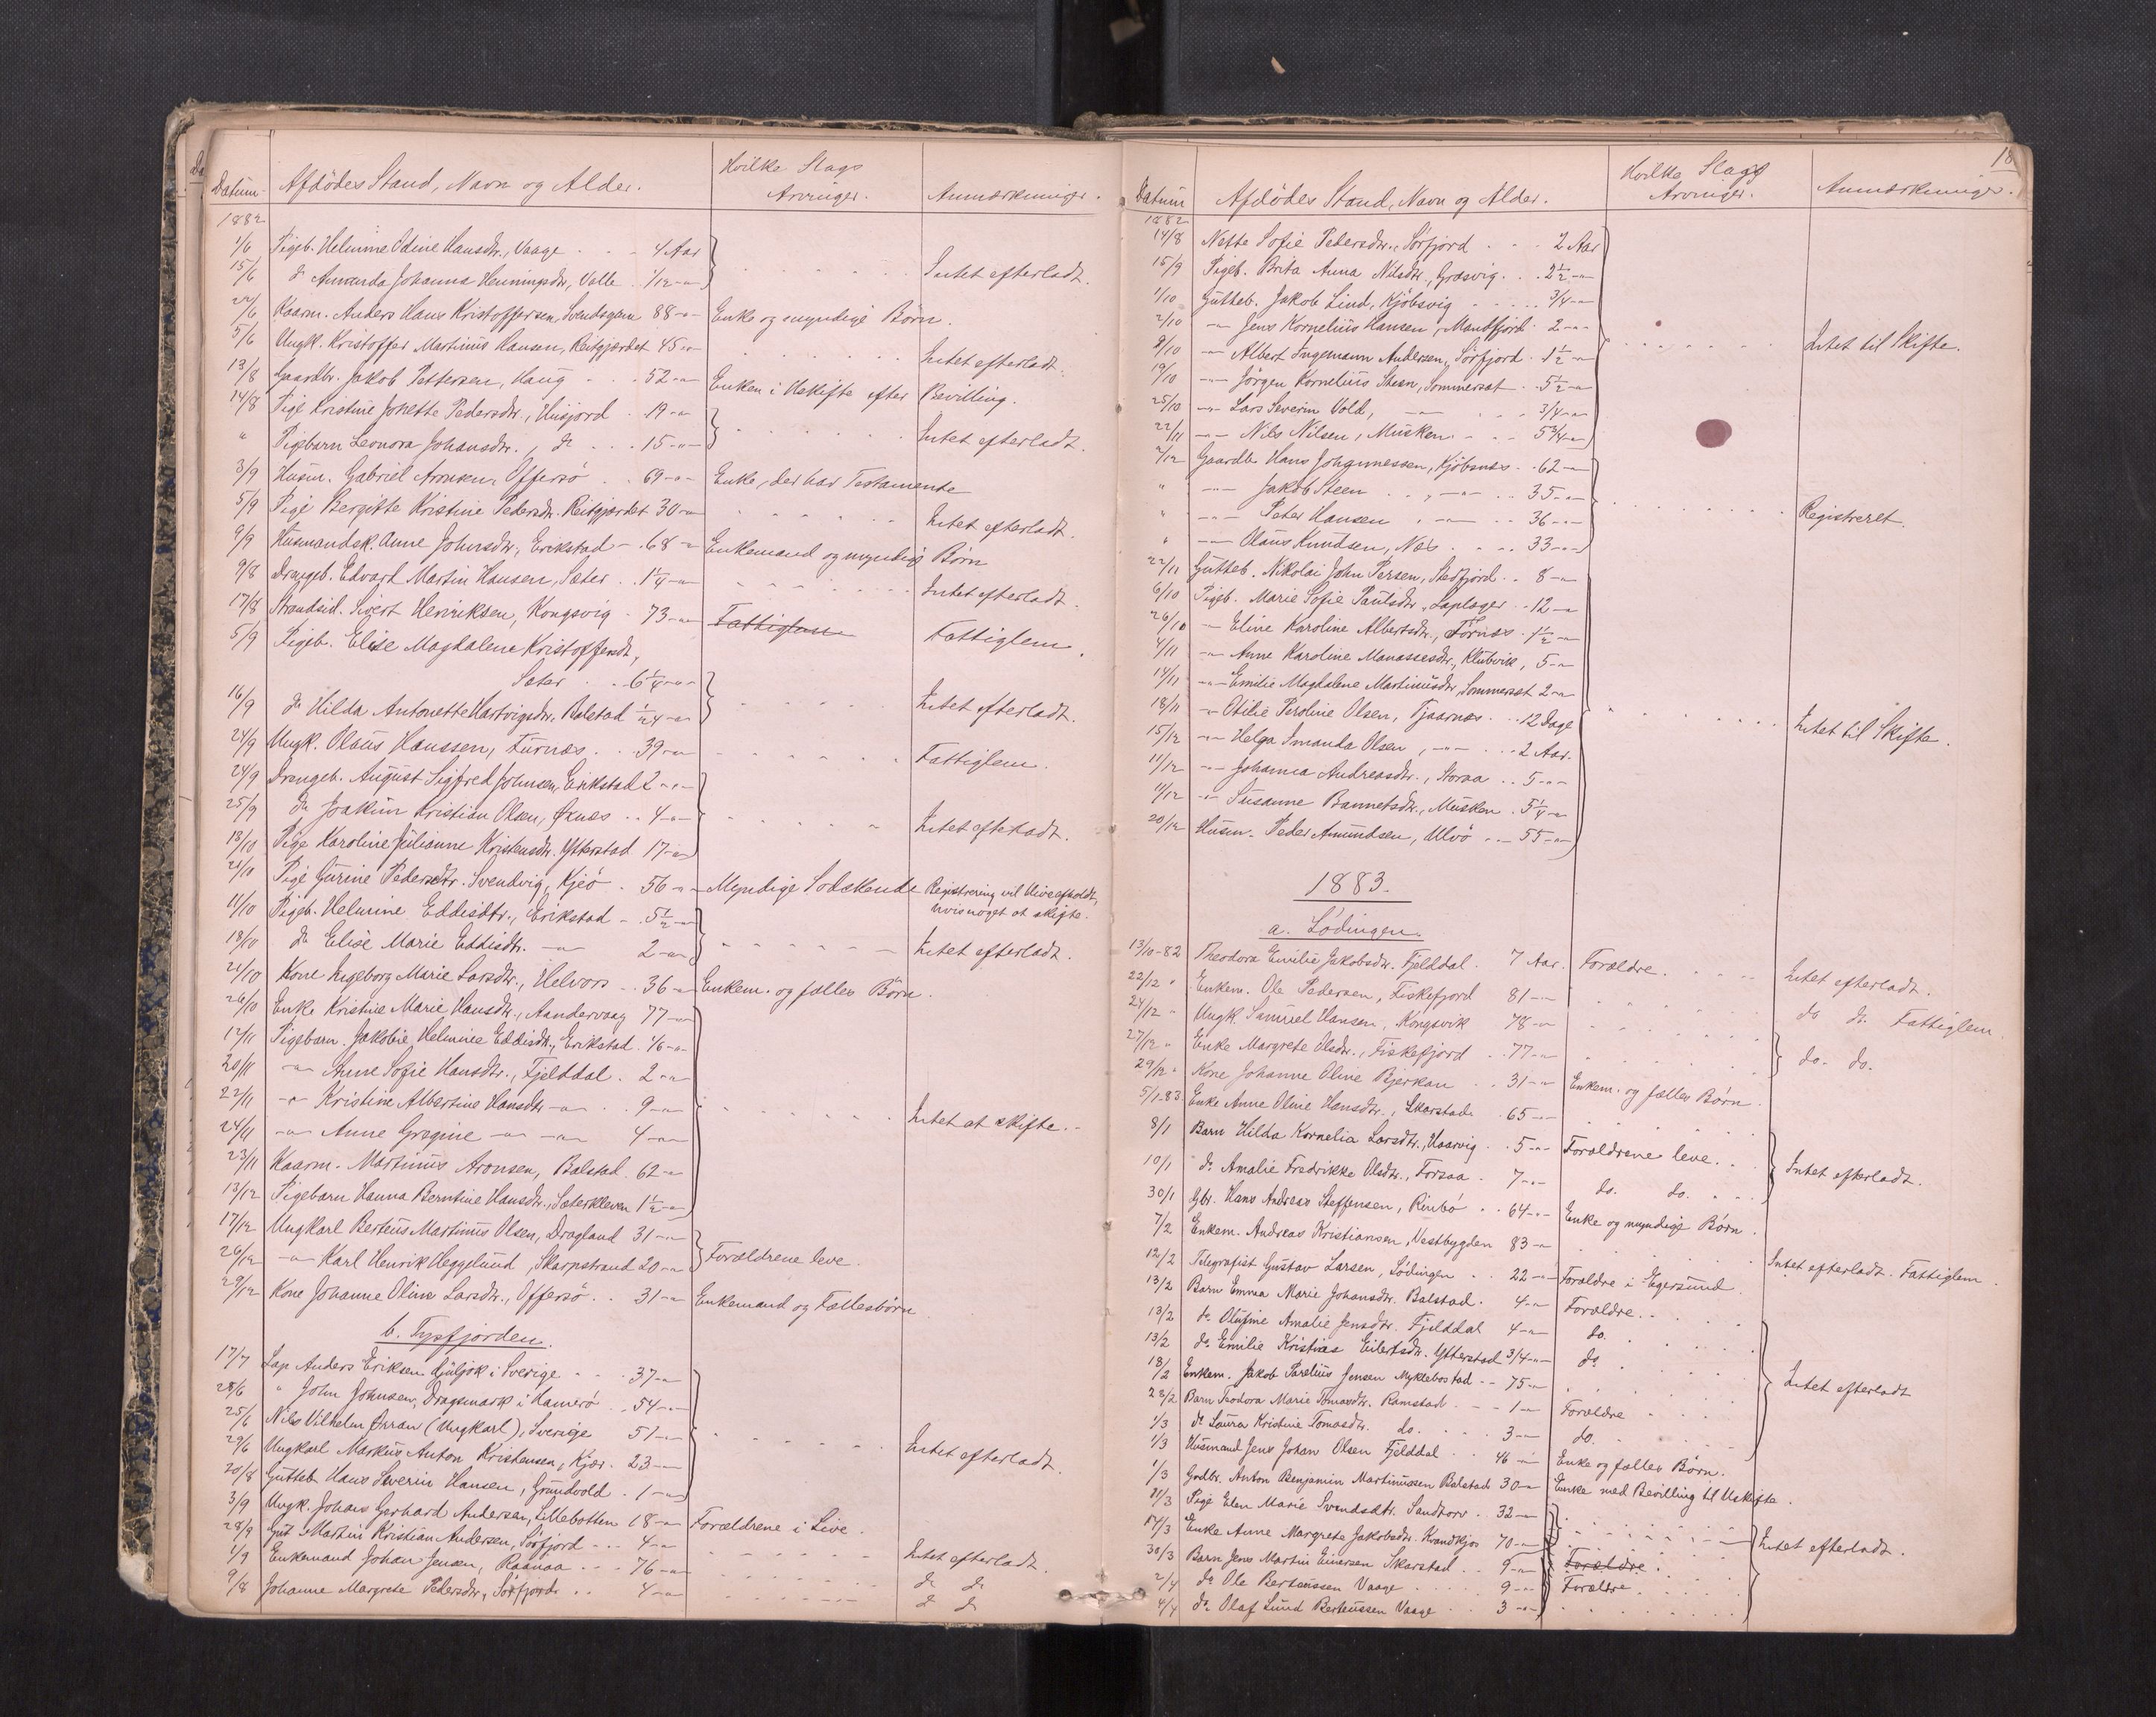 Datum. Afdödes Stand, Navn og Alder. Hvilke Slags Arvinger. Anmærkninger.
1882
1/6 Pigeb. Helmine Odine Hansdtr., Vaage 4 Aar
15/6 do Amanda Johanna Henningsdtr, Valle 1/12 -"- Intet efterladt.
22/6 Kaarm. Anders Hans Kristoffersen, 88 -"- Enke og myndige Börn.
5/6 Ungk. Kristoffer Martinus Hansen, Reitgjærdet 45 -"- Intet efterladt.
13/8 Gaardbr. Jakob Pettersen, Haug 52 -"- Enken i Uskifte efter Bevilling.
14/8 Pige Kristine Jonette Pedersdtr., Husjord 19 -"-
" Pigebarn Leonora Johansdtr., do 15 -"- Intet efterladt.
3/9 Husm. Gabriel Aronsen, Offersö 69 -"- Enke, der har Testamente
5/9 Pige Bergitte Kristine Pedersdtr. Reitgjærdet 30 -"- Intet efterladt.
9/9 Husmandsk. Anne Johnsdtr., Erikstad 68 -"- Enkemand og myndige Börn
9/8 Drengeb. Edvart Martin Hansen, Sæter 1 1/4 -"- Intet efterladt.
17/8 Strandsid. Sigert Henriksen, Kongsvig 73 -"- Fattiglem Fattiglem.
5/9 Pigeb. Elise Magdalene Kristoffersdt,
Sæter 6 1/4 -"-
16/9 do Hilda Antonette Hartvigsdtr, Balstad 1/24 -"- Intet efterladt.
24/9 Ungk. Olaus Hanssen, Furnæs 39 -"- Fattiglem.
24/9 Drengeb. August Sigfred Johnsen, Erikstad 2 -"-
25/9 do Joakim Kristian Olsen, Öxnes 4 -"- Intet efterladt.
18/10 Pige Karoline Julianne Kristensdtr. Ytterstad 17 -"-
21/10 Pige Gurine Pedersdtr. Svendvig, Kjeö 56 -"- Myndige Sødskende Registrering vil blive afholdt,
hvis noget at skifte.
11/10 Pigeb. Helmine Eddisdtr., Erikstad 5 1/2 -"-
18/10 do Elise Marie Eddisdtr. -"- 2 -"- Intet efterladt.
21/10 Kone Ingeborg Marie Larsdtr., Helvors 36 -"- Enkem. og fælles Börn.
26/10 Enke Kristine Marie Hansdtr., Aandervaag 77 -"-
12/11 Pigebarn. Jakobine Helmine Eddisdtr., Erikstad 1/6 -"-
20/11 -"- Anne Sofie Hansdtr., Fjelddal 2 -"-
22/11 -"- Kristine Albertine Hansdtr -"- 9 -"-
24/11 -"- Anne Gregine -"- -"- 4 -"- Intet at skifte.
23/11 Kaarm. Martinus Aronsen, Balstad 62 -"-
13/12 Pigebarn Hanna Berntine Hansdtr., Sæterkleven 1 1/2 -"-
17/12 Ungkarl Berteus Martinus Olsen, Dragland 31 -"-
26/12 -"- Karl Henrik Heggelund, Skarpstrand 20 -"- Forældrene leve.
29/12 Kone Johanne Oline Larsdtr., Offersö 31 -"- Enkemand og Fællesbörn
b. Tysfjorden.
17/7 Lap Anders Eriksen, i Sverige 37 -"-
28/6 " John Johnsen, Dragsmark i Hamerö 54 -"-
25/6 Nils Vilhelm (Ungkarl), Sverige 51 -"-
29/6 Ungkarl Markus Anton Kristensen, Kjær 23 -"- Intet efterladt.
20/8 Gutteb. Hans Severin Hansen, Grundvold 1 -"-
3/9 Ungk. Johan Gerhard Andersen, Lillebotten 18 -"- Forældrene i Live.
28/9 Gut Martin Kristian Andersen, Sörfjord 4 -"-
1/9 Enkemand Johan Jensen, Raanaa 76 -"- Intet efterladt.
9/8 Johanne Margrete Pedersdtr., Sörfjord 4 -"- do do
do do
18
Datum Afdödes Stand, Navn og Alder. Hvilke Slags Arvinger. Anmærkninger.
1882
14/8 Nette Sofie Pedersdtr., Sörfjord 2 Aar
15/9 Pigeb. Brita Anna Nilsdtr., Græsvig 2 1/2 -"-
1/10 Gutteb. Jakob Lind, Kjöbsvig 3/4 -"-
2/10 -"- Jens Kornelius Hansen, Mandfjord 2 -"-
9/10 -"- Albert Ingemann Andersen, Sörfjord 1 1/2 -"- Intet til Skifte.
19/10 -"- Jörgen Kornelius Steen, Sommerset 5 1/2 -"-
25/10 -"- Lars Severin Vold, -"- 3/4 -"-
22/11 -"- Nils Nilsen, Musken 5 3/4 -"-
2/12 Gaardb. Hans Johannessen, Kjöbsnes 62 -"-
" -"- Jakob Steen, -"- 35 -"-
" -"- Peter Hansen, -"- 36 -"- Registreret.
" -"- Olaus Knudsen, Næs 33 -"-
22/11 Gutteb. Nikolai John Persen, Stedfjord 8 -"-
6/10 Pigeb. Marie Sofie Paulsdtr., Laplager 12 -"-
26/10 -"- Eline Karoline Albertsdtr., Fornæs 1 1/2 -"-
4/11 -"- Anne Karoline Manassesdtr., Klubvik, 5 -"-
14/11 -"- Emilie Magdalene Martinusdtr, Sommerset 2 -"-
18/11 -"- Otilie Peroline Olsen, Tjaarnæs 12 Dage
15/12 -"- Helga Imanda Olsen, -"- 2 Aar. Intet til Skifte.
11/12 -"- Johanna Andreasdtr., Storaa 5 -"-
11/12 -"- Susanne Bannetsdtr., Musken 5 1/4 -"-
20/12 Husm. Peder Amundsen, Ulvö 55 -"-
1883.
a. Lödingen.
13/10-82 Theodora Emilie Jakobsdtr. Fjelddal 7 Aar. Forældre. Intet efterladt.
22/12 " Enkem. Ole Pedersen, Fiskefjord 81 -"- do do. Fattiglem
24/12 " Ungk. Samuel Hansen, Kongsvik 78 -"-
27/12 " Enke Margrete Olsdtr., Fiskefjord 77 -"- do. do.
29/12 " Kone Johanne Oline Bjerkan 31 -"- Enkem. og fælles Börn.
5/1.83 Enke Anne Oline Hansdtr., Skarstad 65 -"-
8/1 Barn Hilda Kornelia Larsdtr., Haarvig 5 -"- Forældrene leve. Intet efterladt.
10/1 do Amalie Fredrikke Olsdtr., Forsaa 7 -"- do. do.
30/1 Gbr. Hans Andreas Steffensen, Rinbö 64 -"- Enke og myndige Börn.
7/2 Enkem. Andreas Kristiansen, Vestbygden 83 -"- Intet efterladt. Fattiglem.
12/2 Telegrafist Gustav Larsen, Lödingen 22 -"- Forældre i Egersund.
13/2 Barn Emma Marie Johansdtr. Balstad 4 -"- Forældre.
13/2 do Olufine Amalie Jensdtr. Fjelddal 4 -"- do.
13/2 do Emilie Kristine Eilertsdtr. Ytterstad 3/4 -"- do
18/2 Enkem. Jakob Parelius Jensen Myklebostad 75 -"- Intet efterladt
22/2 Barn Teodora Marie Tomasdtr. Ramstad 1 -"- Forældre
1/3 do Laura Kristine Tomasdtr. do. 3 -"- do.
1/3 Husmand Jens Johan Olsen Fjelddal 46 -"- Enke og fælles Börn.
1/3 Grdbr. Anton Benjamin Martinussen Balstad 30 -"- Enke med Bevilling til Uskifte.
21/3 Pige Elen Marie Svendsdtr. Sandtorv 32 -"-
17/3 Enke Anne Margrete Jakobsdtr. Kvandkjos 70 -"- Intet efterladt.
30/3 Barn Jens Martin Einersen Skarstad 9 -"- Forældre
2/4 do Ole Bertheussen Vaage 9 -"- Forældre
4/4 do Olaf Lund Bertheussen Vaage 3 -"-